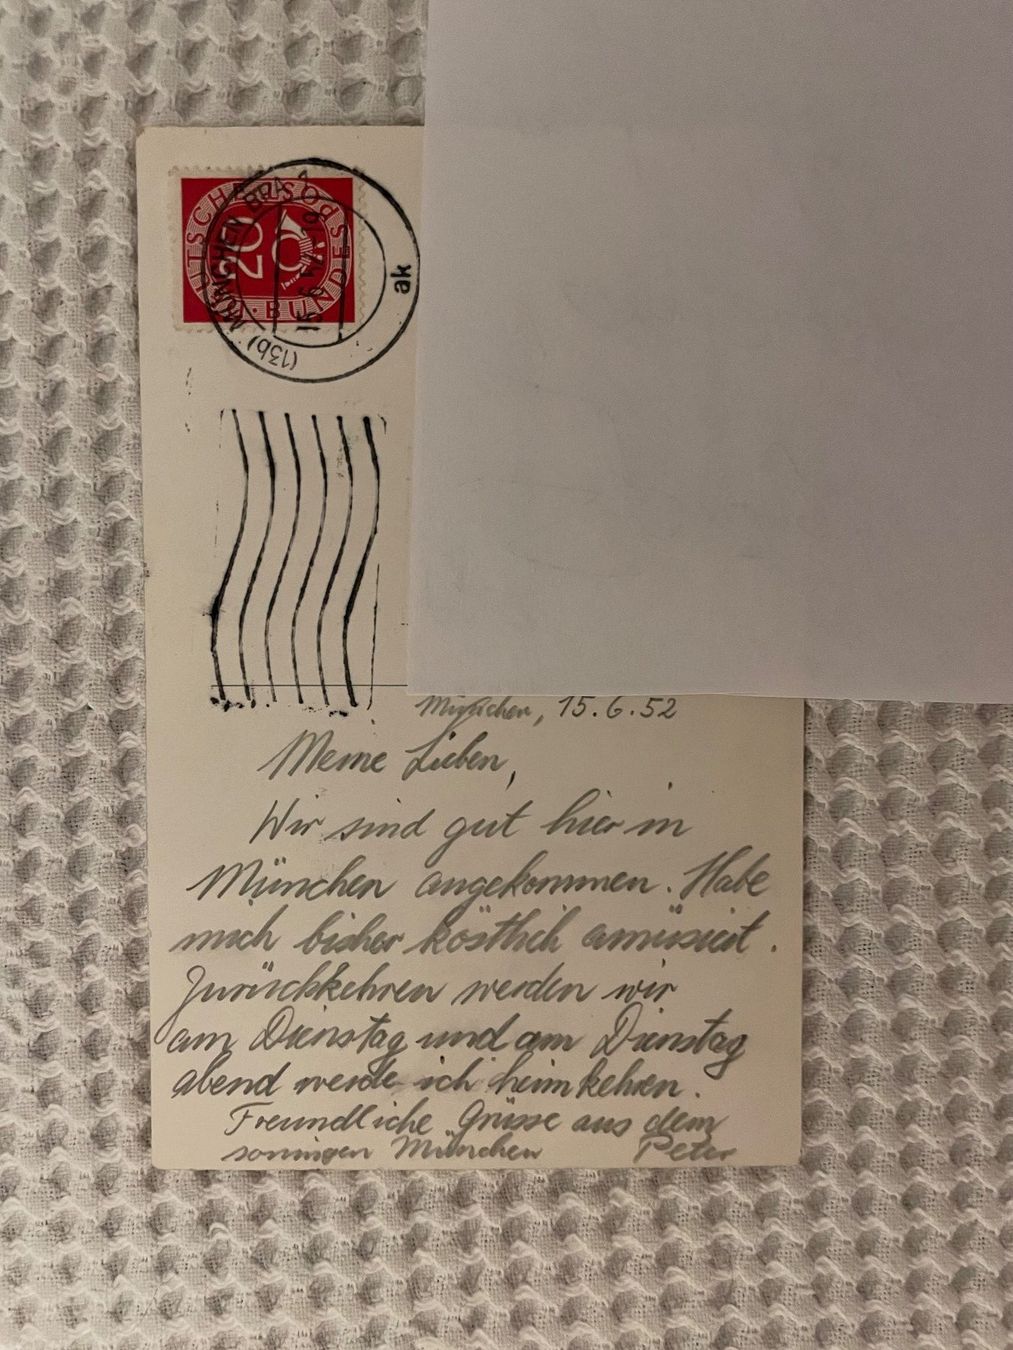 DEUTSCHE BUNDESPOST
20
(13b) MÜNCHEN BPA
15.6.52.19
ak
München, 15.6.52
Meine Lieben,
Wir sind gut hier in
München angekommen. Habe
mich bisher köstlich amüsiert.
Zurückkehren werden wir
am Dienstag und am Dienstag
abend werde ich heimkehren.
Freundliche Grüsse aus dem
sonnigen München Peter